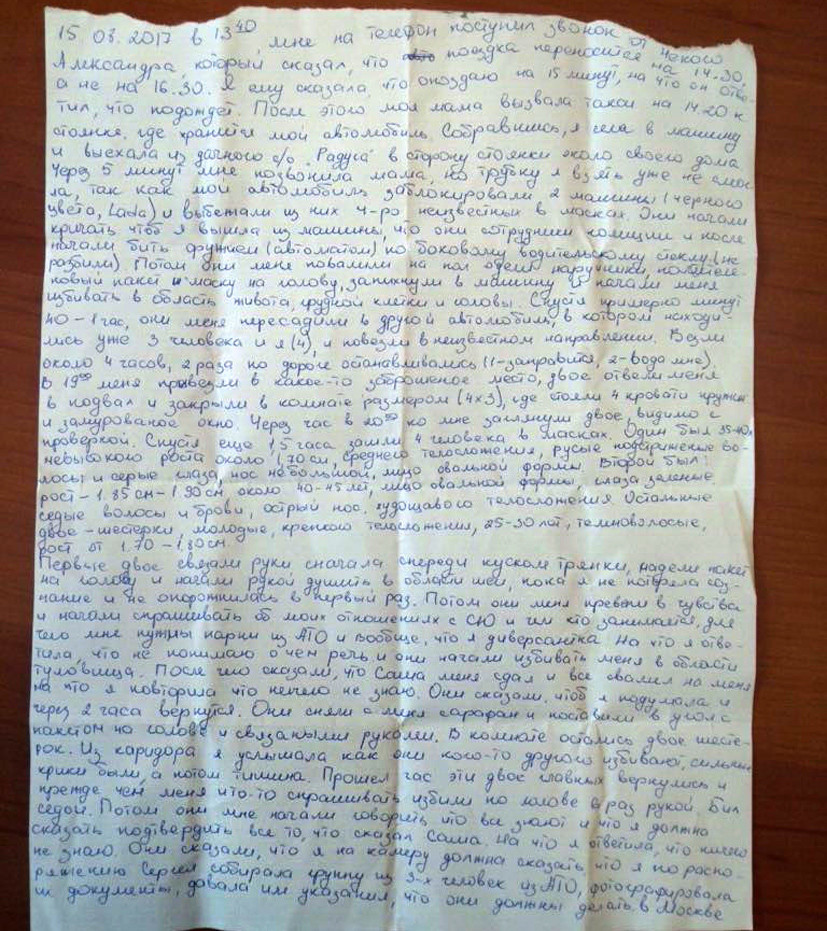 15.08.2017 в 13⁴⁰, мне на телефон поступил звонок от некого
Александра, который сказал, что поездка переносится на 14.30,
а не на 16.30. Я ему сказала, что опоздаю на 15 минут, на что он отве-
тил, что подождет. После этого моя мама вызвала такси на 14.20 к
стоянке, где хранится мой автомобиль. Собравшись, я села в машину
и выехала из дачного с/о "Радуга" в сторону стоянки около своего дома
Через 5 минут мне позвонила мама, но трубку я взять уже не смог-
ла, так как мой автомобиль заблокировали 2 машины (черного
цвета, Lada) и выбежали из них 4-ро неизвестных в масках. Они начали
кричать чтоб я вышла из машины, что они сотрудники полиции и после
начали бить оружием (автоматом) по боковому водительскому стеклу (не
разбили). Потом они меня повалили на пол одели наручники, полиэтиле-
новый пакет и маску на голову, запихнули в машину и начали меня
избивать в область живота, грудной клетки и головы. Спустя примерно минут
40 - 1 час, они меня пересадили в другой автомобиль, в котором находи-
лись уже 3 человека и я (4), и повезли в неизвестном направлении. Везли
около 4 часов, 2 раза по дороге останавливались (1-заправится, 2-вода мне).
В 19⁰⁰ меня привезли в какое-то заброшеное место, двое отвели меня
в подвал и закрыли в комнате размером (4х3), где стояли 4 кровати
и замурованое окно. Через час в 20⁰⁰ ко мне заглянули двое, видимо с
проверкой. Спустя еще 1,5 часа зашли 4 человека в масках. Один был 35-40л
невысокого роста около 1,70 см, среднего телосложения, русые подстриженые во-
лосы и серые глаза, нос небольшой, лицо овальной формы. Второй был:
рост - 1.85 см - 1.90 см около 40-45 лет, лицо овальной формы, глаза зеленые
седые волосы и брови, острый нос, худощавого телосложения. Остальные
двое - шестерки, молодые, крепкого телосложения, 25-30 лет, темноволосые,
рост от 1.70 - 1,80 см.
Первые двое связали руки сначала спереди куском тряпки, надели пакет
на голову и начали рукой душить в области шеи, пока я не потеряла соз-
нание и не опорожнилась в первый раз. Потом они меня превели в чувства
и начали спрашивать об моих отношениях с СЮ и чем кто занимается, для
чего мне нужны парни из АТО и вообще, что я диверсантка. На что я отве-
тила, что не понимаю о чем речь и они начали избивать меня в области
туловища. После чего сказали, что Саша меня сдал и все свалил на меня
на что я повторила что ничего не знаю. Они сказали, чтоб я подумала и
через 2 часа вернутся. Они сняли с меня сарафан и поставили в угол с
пакетом на голове и связаными руками. В комнате остались двое шесте-
рок. Из каридора я услышала как они кого-то другого избивают, сильные
крики были, а потом тишина. Прошел час эти двое главных вернулись и
прежде чем меня что-то спрашивать избили по голове раз рукой. Бил
седой. Потом они мне начали говорить что все знают и что я должна
сказать подтвердить все то, что сказал Саша. На что я ответила, что ничего
не знаю. Они сказали, что я на камеру должна сказать, что я по распо-
ряжению Сергея собирала группу из 3-х человек из АТО, фотографировала
их документы, давала им указания, что они должны делать в Москве